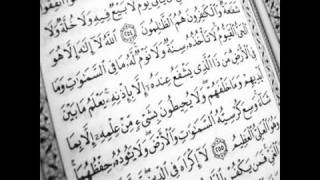 يَوْمٌ لَّا بَيْعٌ فِيهِ وَلَا خُلَّةٌ وَلَا
شَفَٰعَةٌ وَٱلْكَٰفِرُونَ هُمُ ٱلظَّٰلِمُونَ ٢٥٤ ٱللَّهُ لَآ إِلَٰهَ إِلَّا هُوَ
ٱلْحَىُّ ٱلْقَيُّومُ لَا تَأْخُذُهُۥ سِنَةٌ وَلَا نَوْمٌ لَّهُۥ مَا فِى ٱلسَّمَٰوَٰتِ وَمَا
فِى ٱلْأَرْضِ مَن ذَا ٱلَّذِى يَشْفَعُ عِندَهُۥٓ إِلَّا بِإِذْنِهِۦ يَعْلَمُ مَا بَيْنَ
أَيْدِيهِمْ وَمَا خَلْفَهُمْ وَلَا يُحِيطُونَ بِشَىْءٍ مِّنْ عِلْمِهِۦٓ إِلَّا بِمَا
شَآءَ وَسِعَ كُرْسِيُّهُ ٱلسَّمَٰوَٰتِ وَٱلْأَرْضَ وَلَا يَـُٔودُهُۥ حِفْظُهُمَا
وَهُوَ ٱلْعَلِىُّ ٱلْعَظِيمُ ٢٥٥ لَآ إِكْرَاهَ فِى ٱلدِّينِ
ٱلْغَىِّ فَمَن يَكْفُرْ